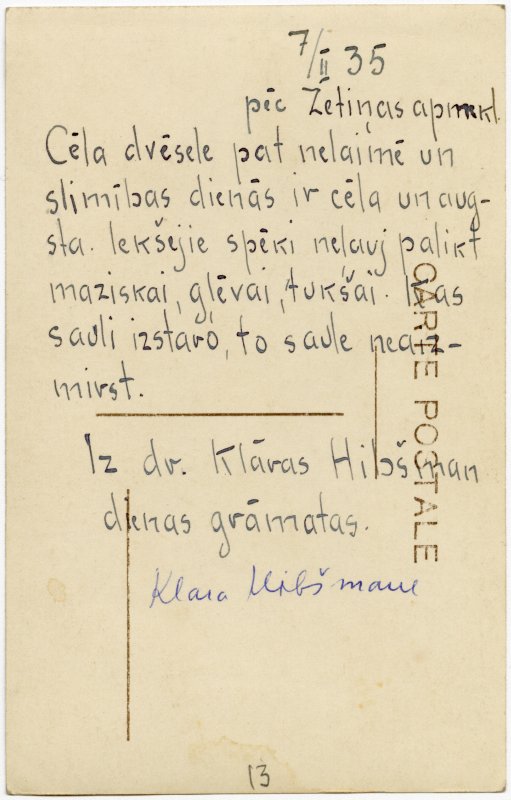 7/II 35
pēc Žetiņas apmekl.
Cēla dvēsele pat nelaimē un
slimības dienās ir cēla un aug-
sta. Iekšējie spēki neļauj palikt
maziskai, glēvai, tukšai. Kas
sauli izstaro, to saule neaiz-
mirst.
Iz dr. Klāras Hibšman
dienas grāmatas.
Klara Hibšmane
CARTE POSTALE
13